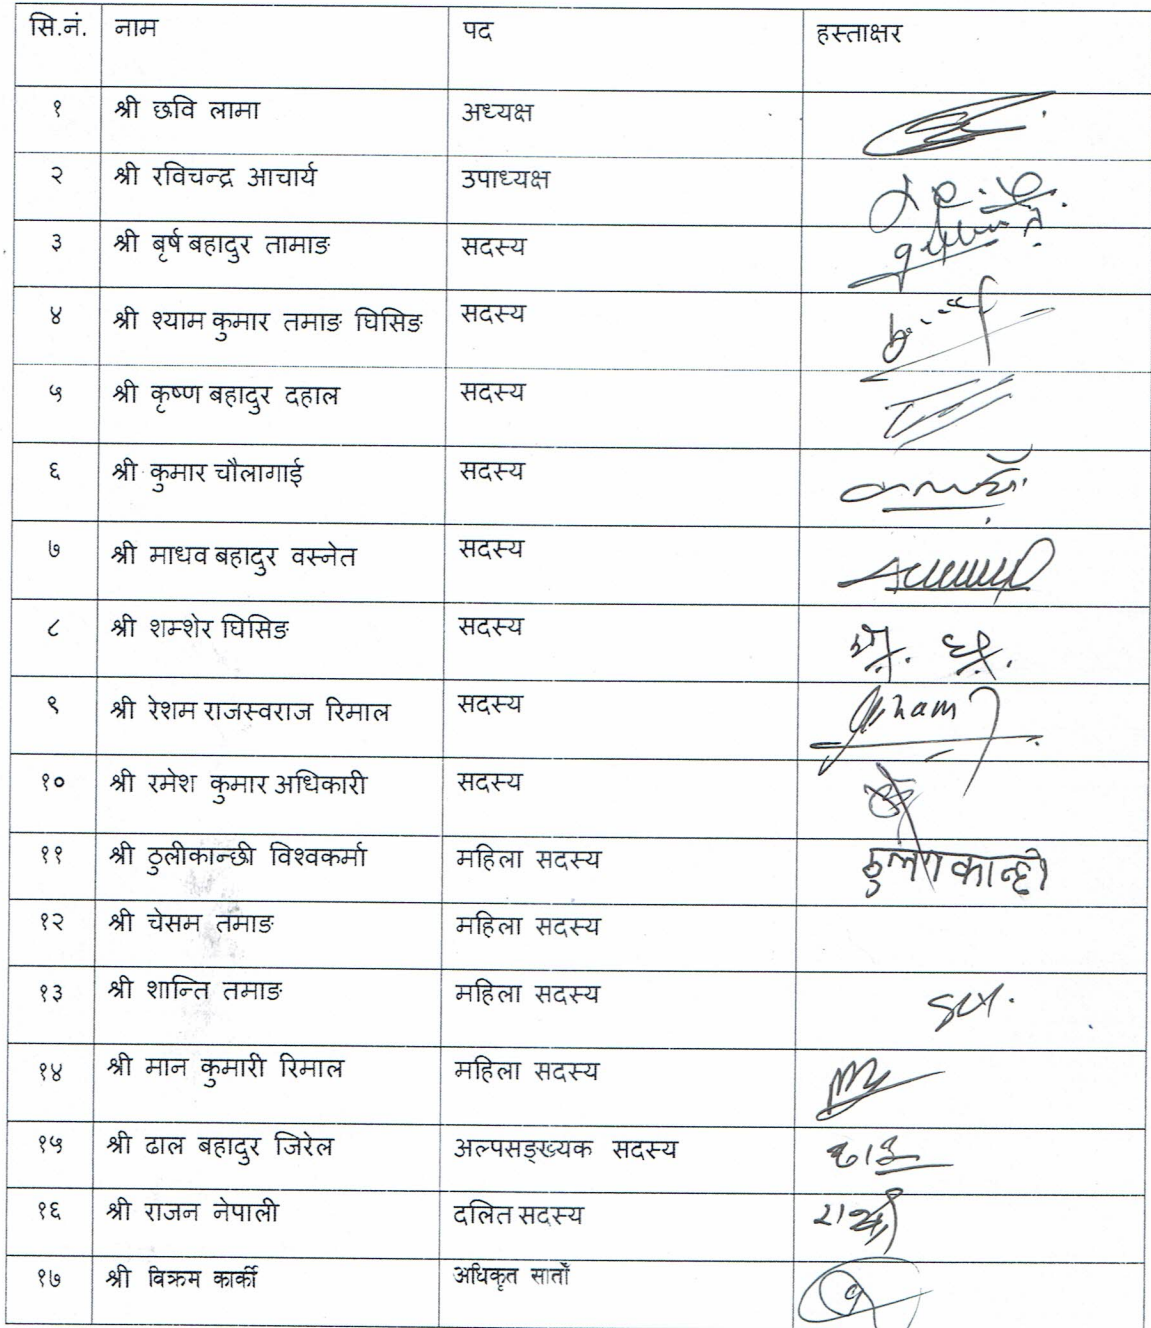 सि.नं. नाम पद हस्ताक्षर
१ श्री छवि लामा अध्यक्ष
२ श्री रविचन्द्र आचार्य उपाध्यक्ष
३ श्री बृर्ष बहादुर तामाङ सदस्य
४ श्री श्याम कुमार तमाङ घिसिङ सदस्य
५ श्री कृष्ण बहादुर दहाल सदस्य
६ श्री कुमार चौलागाई सदस्य
७ श्री माधव बहादुर वस्नेत सदस्य
८ श्री शम्शेर घिसिङ सदस्य
९ श्री रेशम राजस्वराज रिमाल सदस्य
१० श्री रमेश कुमार अधिकारी सदस्य
११ श्री ठुलीकान्छी विश्वकर्मा महिला सदस्य
१२ श्री चेसम तमाङ महिला सदस्य
१३ श्री शान्ति तमाङ महिला सदस्य
१४ श्री मान कुमारी रिमाल महिला सदस्य
१५ श्री ढाल बहादुर जिरेल अल्पसङ्ख्यक सदस्य
१६ श्री राजन नेपाली दलित सदस्य
१७ श्री विक्रम कार्की अधिकृत सातौँ